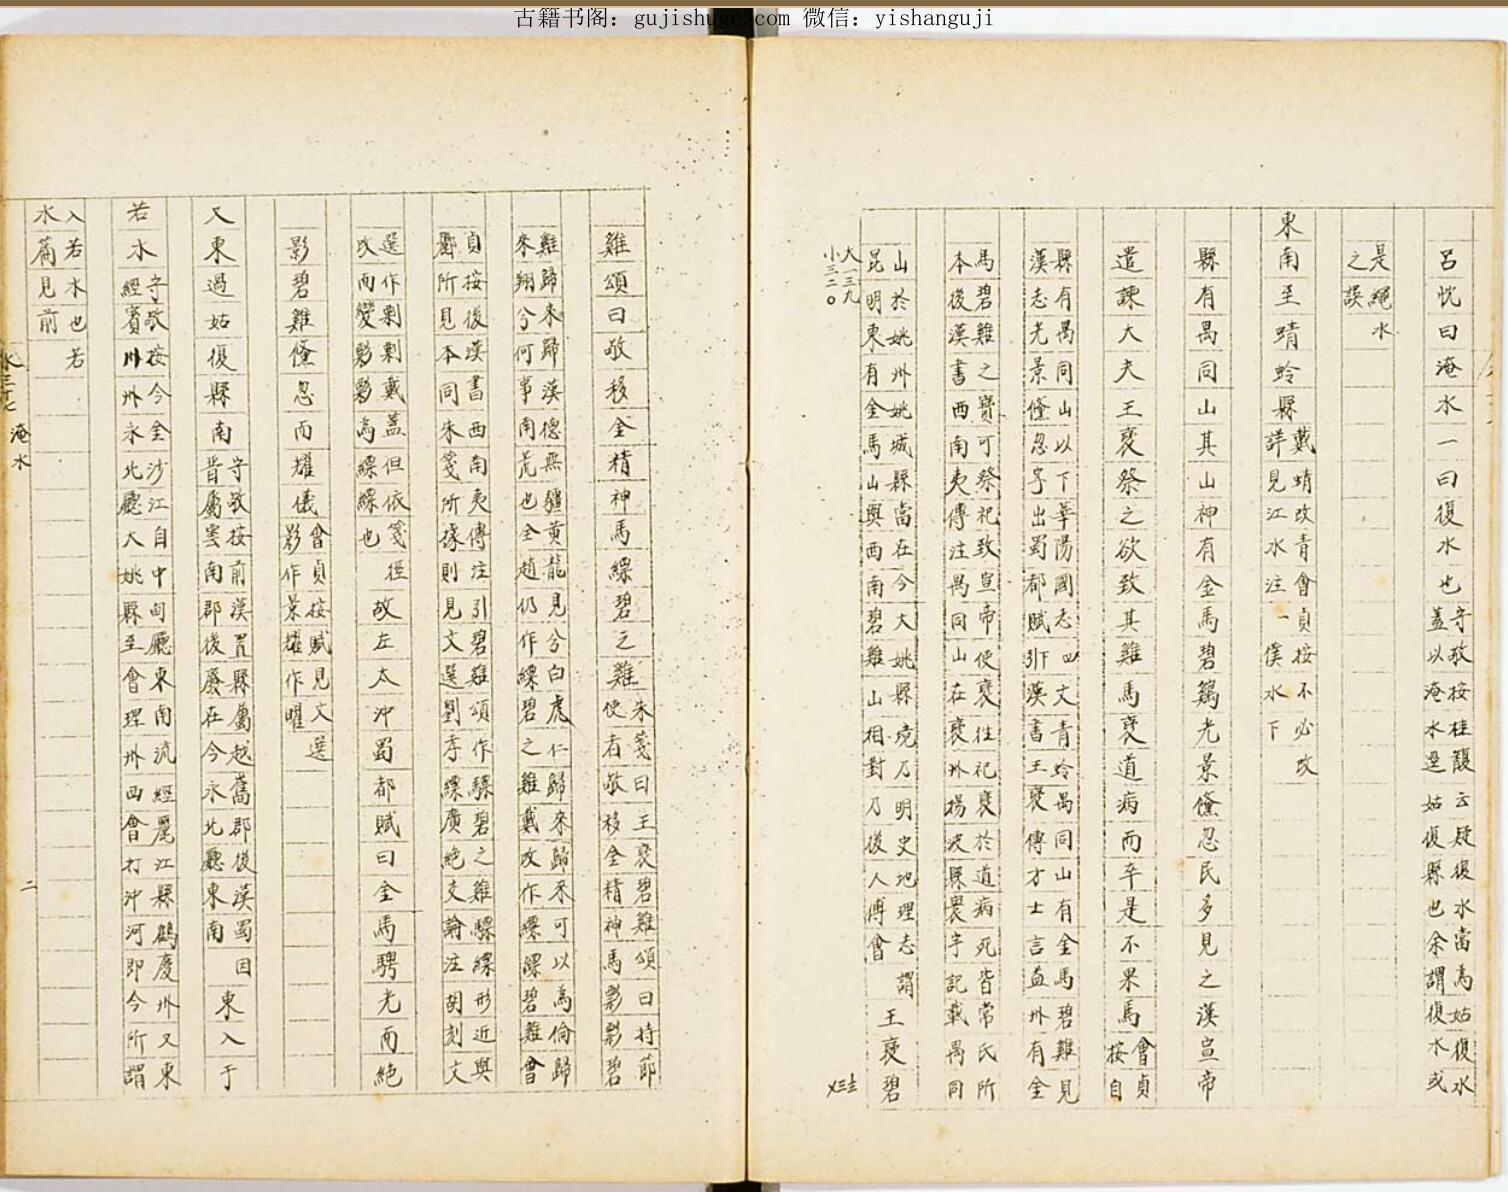 古籍书阁：gujishuge.com 微信：yishanguji
呂忱曰淹水一曰復水也守敬按桂馥云疑復水當為姑復水
蓋以淹水逕姑復縣也余謂復水或
是繩水
之誤
東南至蜻蛉縣戴蜻改青會貞按不必改
詳見江水注一僕水下
縣有禺同山其山神有金馬碧鷄光景儵忽民多見之漢宣帝
遣諫大夫王褒祭之欲致其雞馬褒道病而卒是不果馬會貞
按自
縣有禺同山以下華陽國志四文青蛉禺同山有金馬碧雞見
漢志光景儵忽字出蜀都賦引漢書王褒傳方士言益州有金
馬碧雞之寶可祭祀致宣帝使褒往祀褒於道病死皆常氏所
本後漢書西南夷傳注禺同山在褒州揚波縣寰宇記載禺同
山於姚州姚城縣當在今大姚縣境乃明史地理志謂
昆明東有金馬山與西南碧雞山相對乃後人傅會
王褒碧
大一三九
小三二〇
雞頌曰敬移金精神馬縹碧之雞朱箋曰王褒碧雞頌曰持節
使者敬移金精神馬剽剽碧
雞歸來歸漢德無疆黃龍見兮白虎仁歸來歸來可以為倫歸
來翔兮何事南荒也全趙仍作縹碧之雞戴改作縹縹碧雞會
貞按後漢書西南夷傳注引碧雞頌作驃碧之雞驃縹形近與
酈所見本同朱箋所據則見文選劉孝縹廣絕交論注胡刻文
選作剽剽戴蓋但依箋徑
改而變剽剽為縹縹也
故左太沖蜀都賦曰金馬騁光而絕
影碧雞儵忽而耀儀會貞按賦見文選
影作景耀作曜
又東過姑復縣南守敬按前漢置縣屬越嶲郡後漢蜀因
晉屬雲南郡後廢在今永北廳東南
東入于
若水守敬按今金沙江自中甸廳東南流經麗江縣鶴慶州又東
經賓川州永北廳大姚縣至會理州西會打沖河即今所謂
入若水也若
水篇見前
水三十七 淹水
二